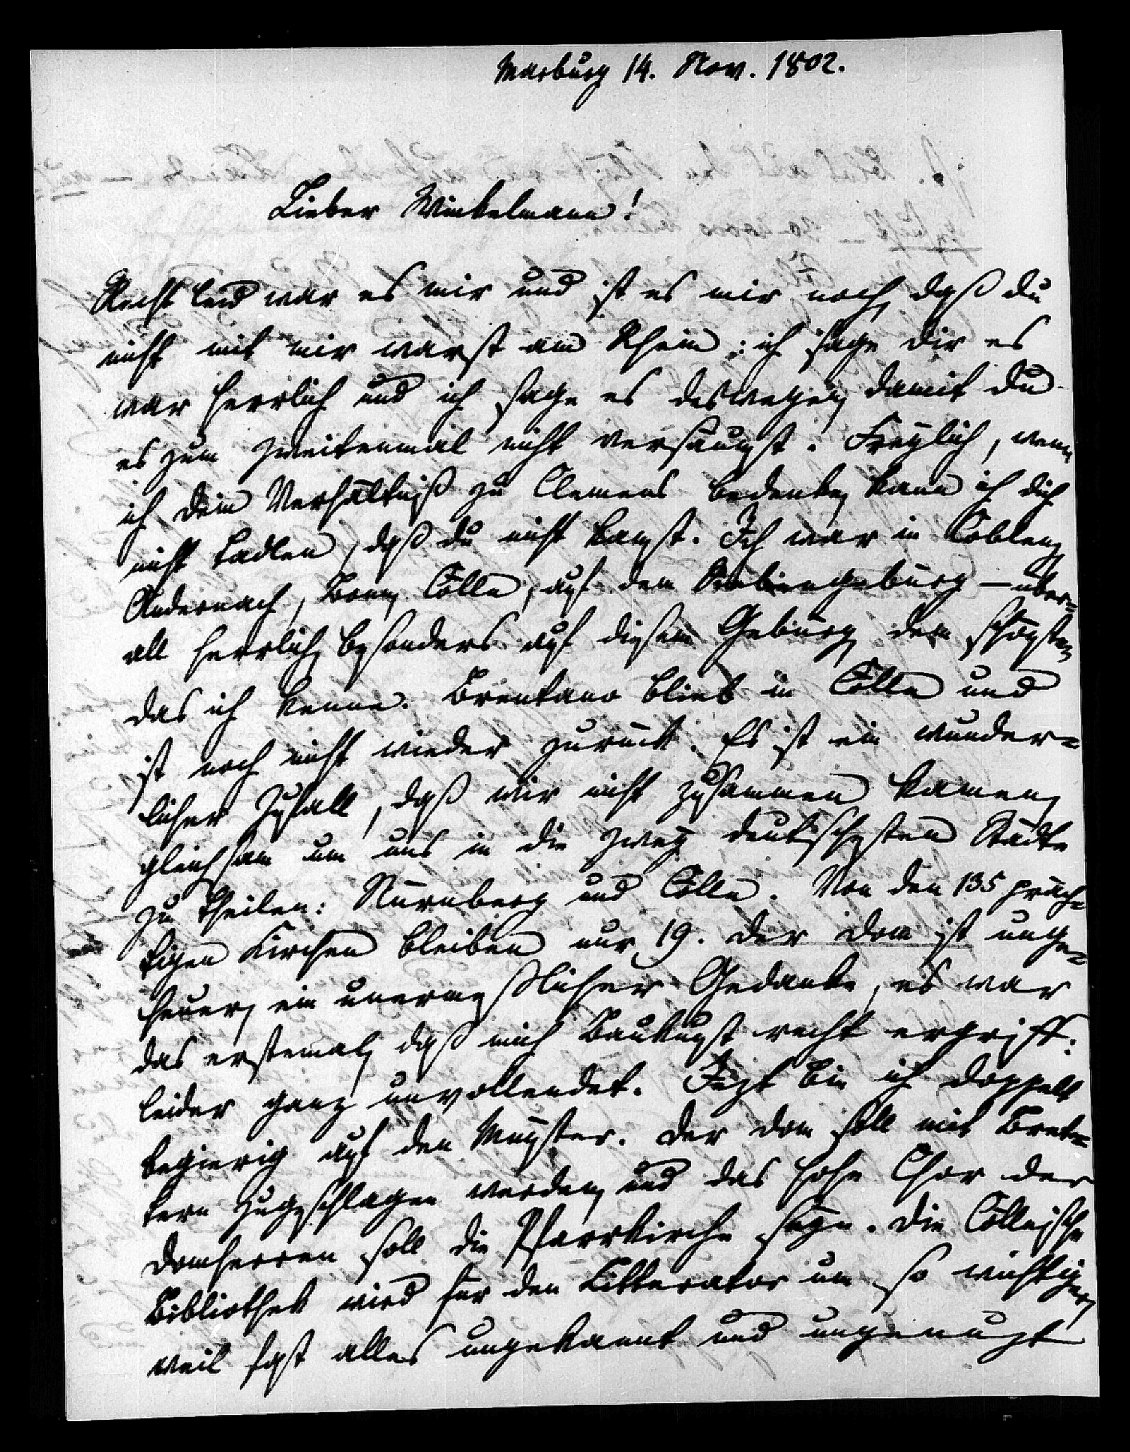 Marburg 14. Nov. 1802.
Lieber Winkelmann!
Recht leid war es mir und ist es mir noch, daß du
nicht mit mir warst am Rhein; ich sage dir es
war herrlich und ich sage es deswegen, damit du
es zum zweitenmal nicht versäumst. Freylich, wenn
ich dein Verhältniß zu Clemens bedenke, kann ich dich
nicht tadlen, daß du nicht kamst. Ich war in Coblenz,
Andernach, Bonn, Cölln, auf dem Siebengebürg – über-
all herrlich, besonders auf diesem Gebürg, dem schönsten,
das ich kenne. Brentano blieb in Cölln und
ist noch nicht wieder zurück. Es ist ein wunder-
licher Zufall, daß wir nicht zusammen kamen,
gleichsam um uns in die zwey deutschesten Städte
zu theilen: Nürnberg und Cölln. Von den 135 präch-
tigen Kirchen bleiben nur 19. Der Dom ist unge-
heuer, ein unermeßlicher Gedanke, es war
das erstemal, daß mich Baukunst recht ergriff:
leider ganz unvollendet. Jezt bin ich doppelt
begierig auf den Münster. Der Dom soll mit Bret-
tern zugeschlagen werden, und das hohe Chor der
Domherren soll die Pfarrkirche seyn. Die Cöllnische
Bibliothek wird für den Litterator um so wichtiger,
weil fast alles ungekannt und ungenuzt